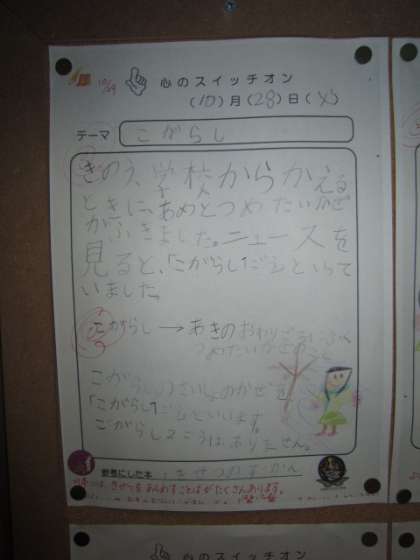 10/29
心のスイッチオン
(10)月(28)日(火)
テーマ こがらし
きのう、学校からかえる
ときに、あめとつめたいかぜ
がふきました。ニュースを
見ると、「こがらし1ごう」といって
いました。
こがらし→あきのおわりごろにふく
つめたいかぜのこと
こがらしのさいしょのかぜを
「こがらし1ごう」といいます。
こがらし2ごうはありません。
参考にした本 :きせつのずかん